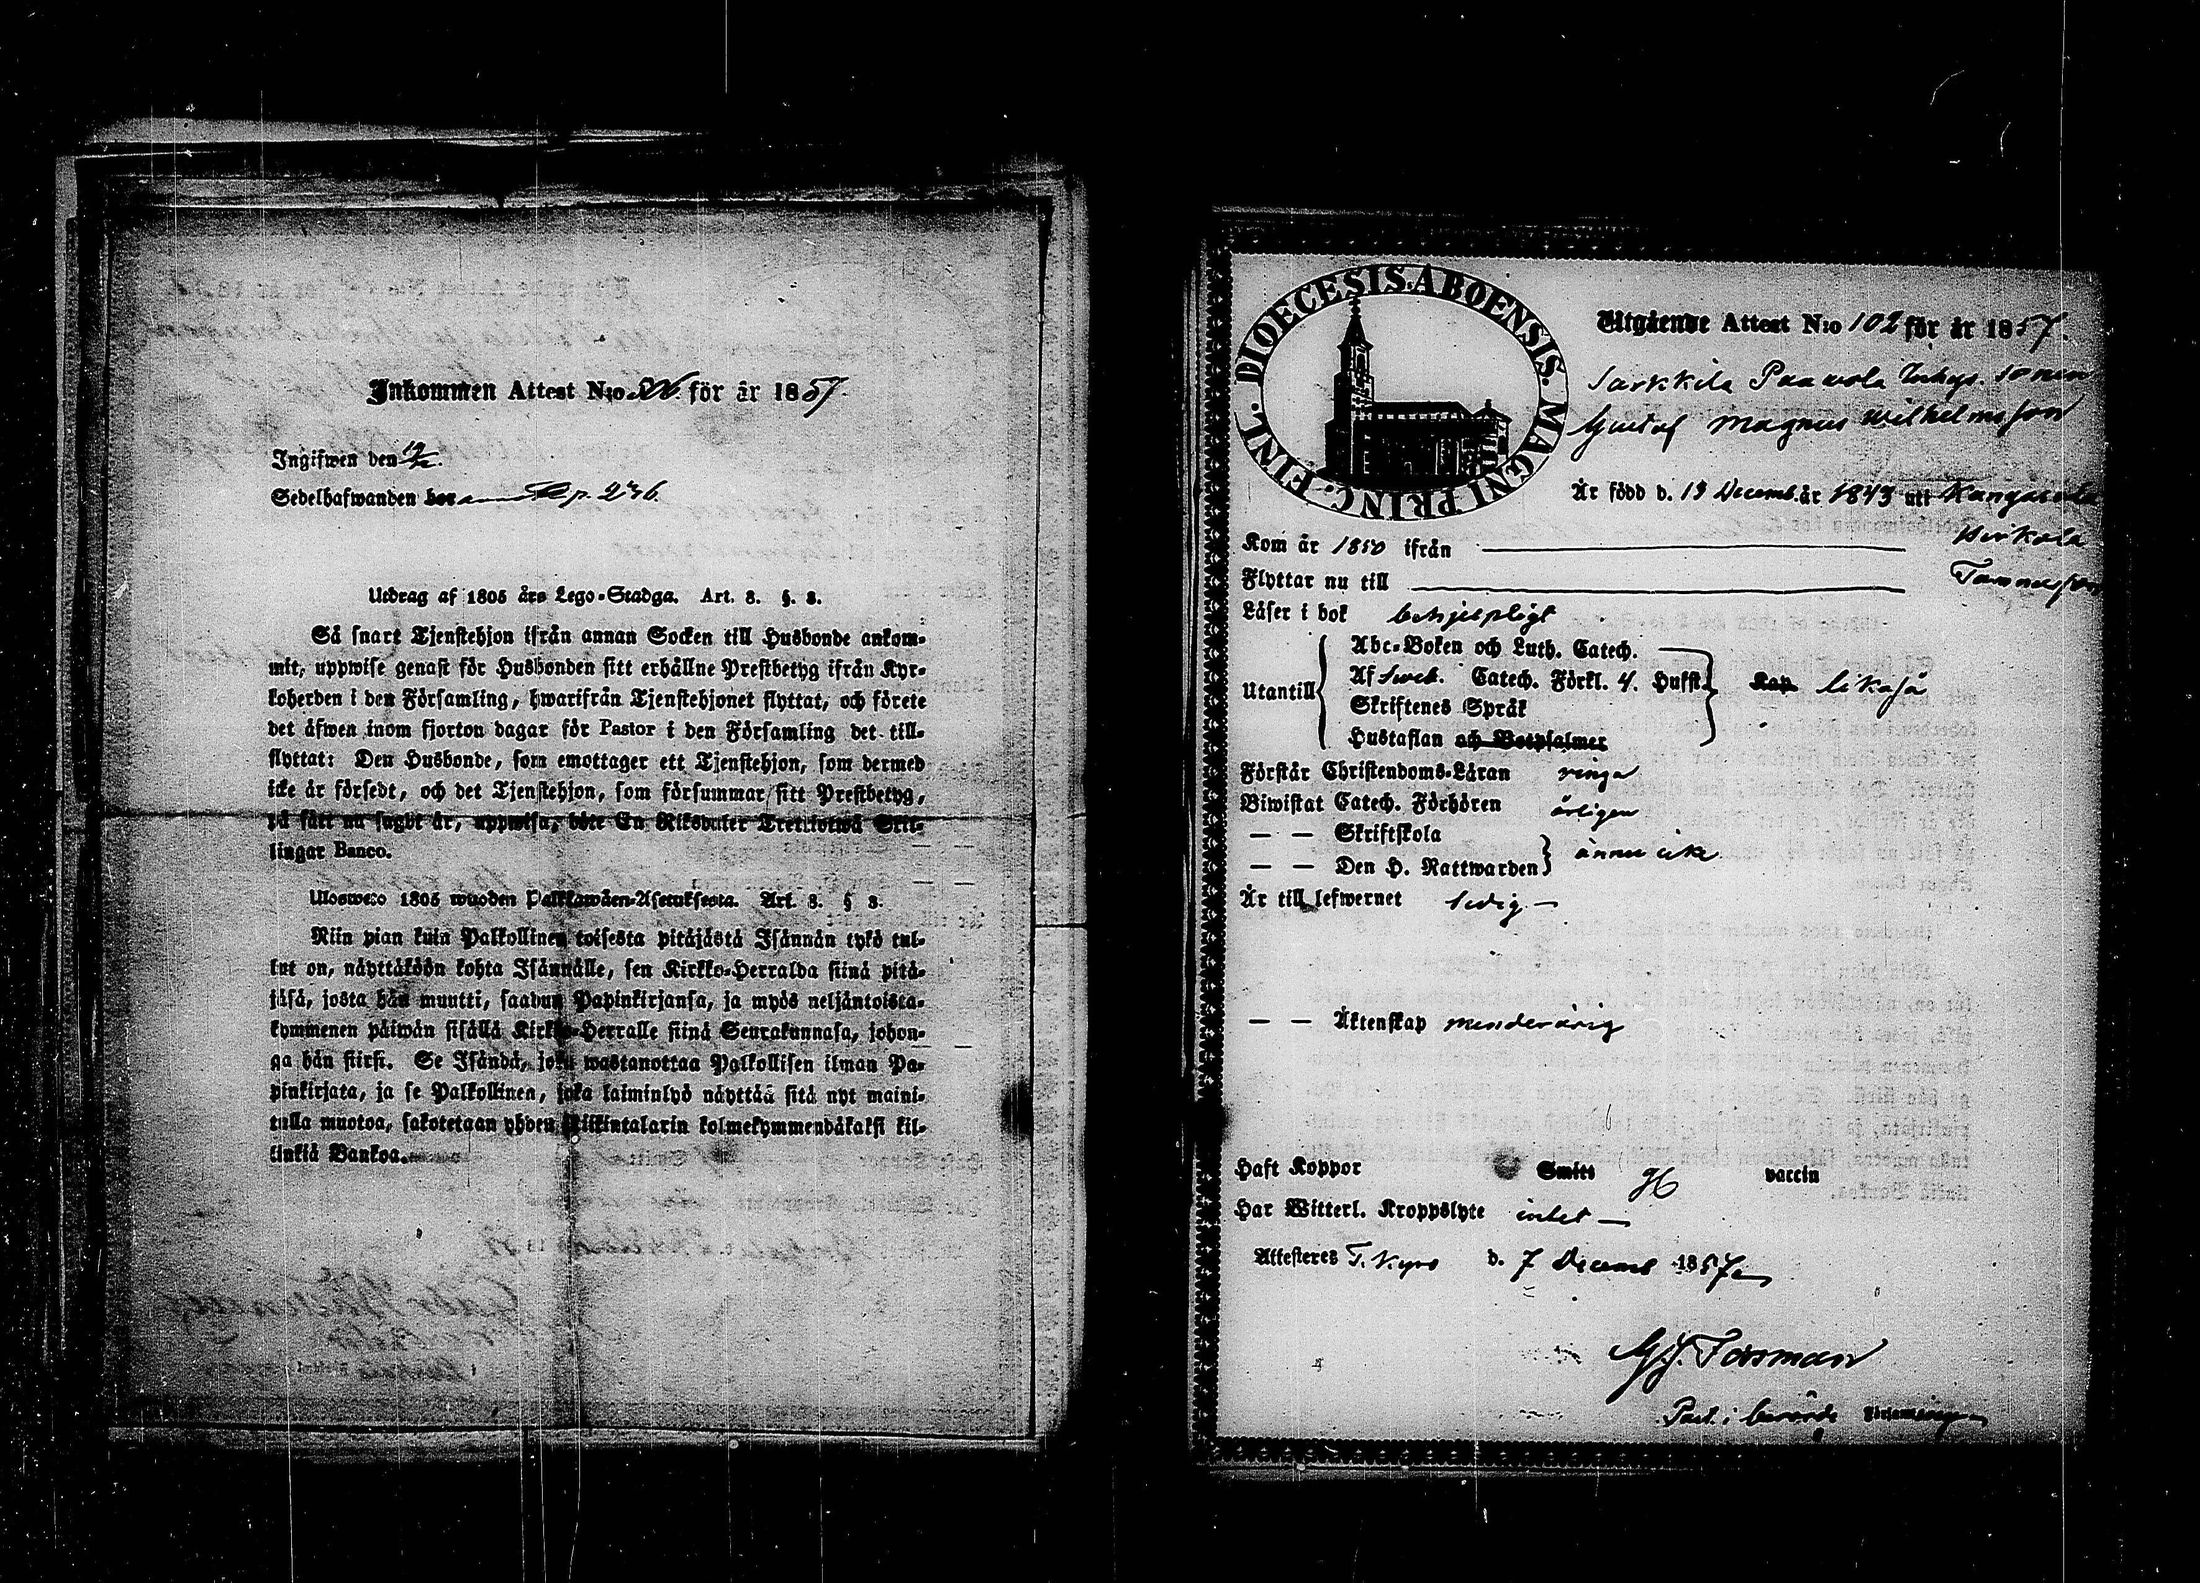 Inkommen Attest N:o för år 1857.
Ingifwen den
Sedelhafwanden p. 246.
Utdrag af 1805 års Lego-Stadga. Art. 3. §. 3.
Så snart Tjenstehjon ifrån annan Socken till Husbonde ankom-
mit, uppwise genast för Husbonden sitt erhållne Prestbetyg ifrån Kyr-
koherden i den Församling, hwarifrån Tjenstehjonet flyttat, och förete
det äfwen inom fjorton dagar för Pastor i den Församling det till-
flyttat: Den Husbonde, som emottager ett Tjenstehjon, som dermed
icke är försedt, och det Tjenstehjon, som försummar sitt Prestbetyg,
på sätt nu sagdt är, uppwisa, böte En Riksdaler Trettiotwå Skil-
lingar Banco.
Ulosweto 1805 wuoden Palkkawäen-Asetuksesta. Art. 3. § 3.
Niin pian kuin Palkollinen toisesta pitäjästä Isännän tykö tul-
lut on, näyttäköön kohta Isännälle, sen Kirkko-Herralda siinä pitä-
jäsä, josta hän muutti, saadun Papinkirjansa, ja myös neljäntoista-
kymmenen päiwän sisällä Kirkko-Herralle siinä Seurakunnasa, johon-
ga hän siirsi. Se Isändä, joka wastanottaa Palkollisen ilman Pa-
pinkirjata, ja se Palkollinen, joka laiminlyö näyttää sitä nyt maini-
tulla muotoa, sakotetaan yhden Riikintalarin kolmekymmendäkaksi kil-
linkiä Bankoa.
DIOECESIS ABOENSIS. MAGNI PRINC. FINL.
Utgående Attest N:o 102 för år 1857.
Sarkkila Paawola Inhys. sonen
Gustaf Magnus Wilhelmsson
Är född d. 13 Decemb. år 1843 uti Kangasala
Kom år 1850 ifrån
Flyttar nu till
Läser i bok behjelpligt
Abc-Boken och Luth. Catech.
Utantill Af Sweb. Catech. Förkl. 4. Hufst. likaså
Skriftenes Språk
Hustaflan och Botpsalmer
Förstår Christendoms-Läran ringa
Biwistat Catech. Förhören årligen
— — Skriftskola
— — Den H. Nattwarden ännu icke
Är till lefwernet ledig —
— — Äktenskap minderårig
Haft Koppor Smitt vaccin
Har Witterl. Kroppslyte intet —
Attesteres T. Kyro d. 7 Decemb 1857
G. J. Forsman
Past. i berörde Församling